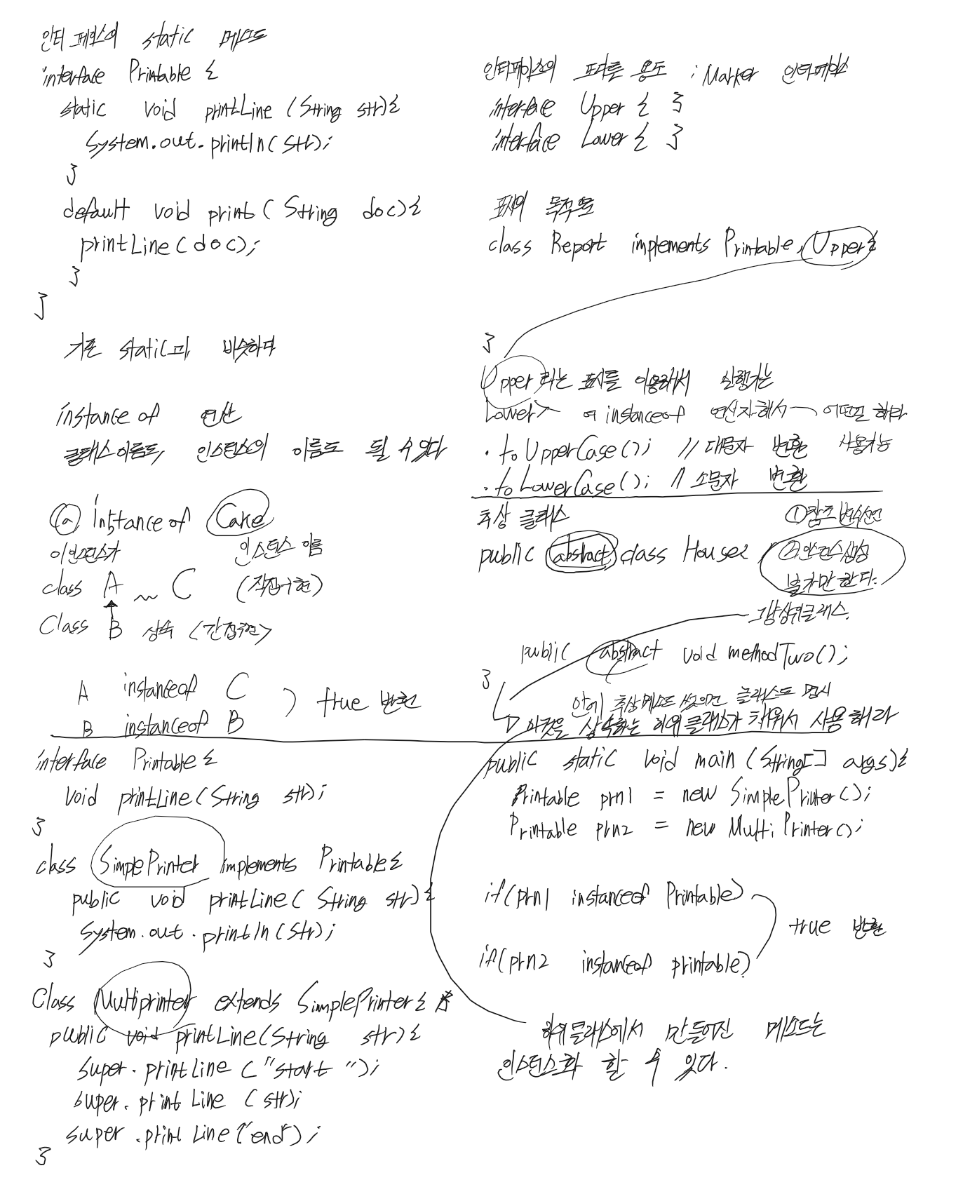 인터페이스의 static 메소드
interface Printable {
static void printLine (String str){
System.out.println(str);
}
default void print ( String doc){
printLine(doc);
}
}
기존 static과 비슷하다
instance of 연산
클래스이름도, 인스턴스의 이름도 될 수 있다
(a) Instance of Cake
인스턴스 이름
class A ~ C (직접구현)
Class B 상속 (간접구현)
A instanceof C
B instanceof B
) true 반환
interface Printable {
void printLine(String str);
}
class SimplePrinter implements Printable {
public void printLine( String str){
System.out.println(str);
}
Class Multiprinter extends SimplePrinter {
public void printLine(String str){
super.printLine ("start ");
super.printLine (str);
super.printLine("end");
}
인터페이스의 또다른 용도 ; Marker 인터페이스
interface Upper { }
interface Lower { }
표시의 목적으로
class Report implements Printable, Upper {
}
Upper 라는 표시를 이용해서 실행하는
Lower> 여 instanceof 연산자해서 ~ 어떤걸 해라
. to UpperCase(); // 대문자 변환 사용가능
. to LowerCase(); // 소문자 변환
추상 클래스 ①참조변수선언
public abstract class House2 ②인스턴스생성
불가만 한다.
그냥상위클래스.
public abstract void methodTwo();
}
추상메소드 있으면 클래스도 명시
이것을 상속하는 하위 클래스가 채워서 사용해라
public static void main (String[] args){
Printable prn1 = new SimplePrinter();
Printable prn2 = new MultiPrinter();
if(prn1 instanceof Printable)
true 반환
if(prn2 instanceof printable)
하위클래스에서 만들어진 메소드는
인스턴스화 할 수 있다.